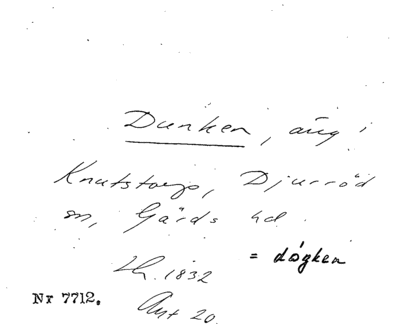 Dunken, äng i
Knutstorp, Djurröd
sn, Gärds hd.
= dögken
Lh. 1832
Akt 20.
Nr 7712.